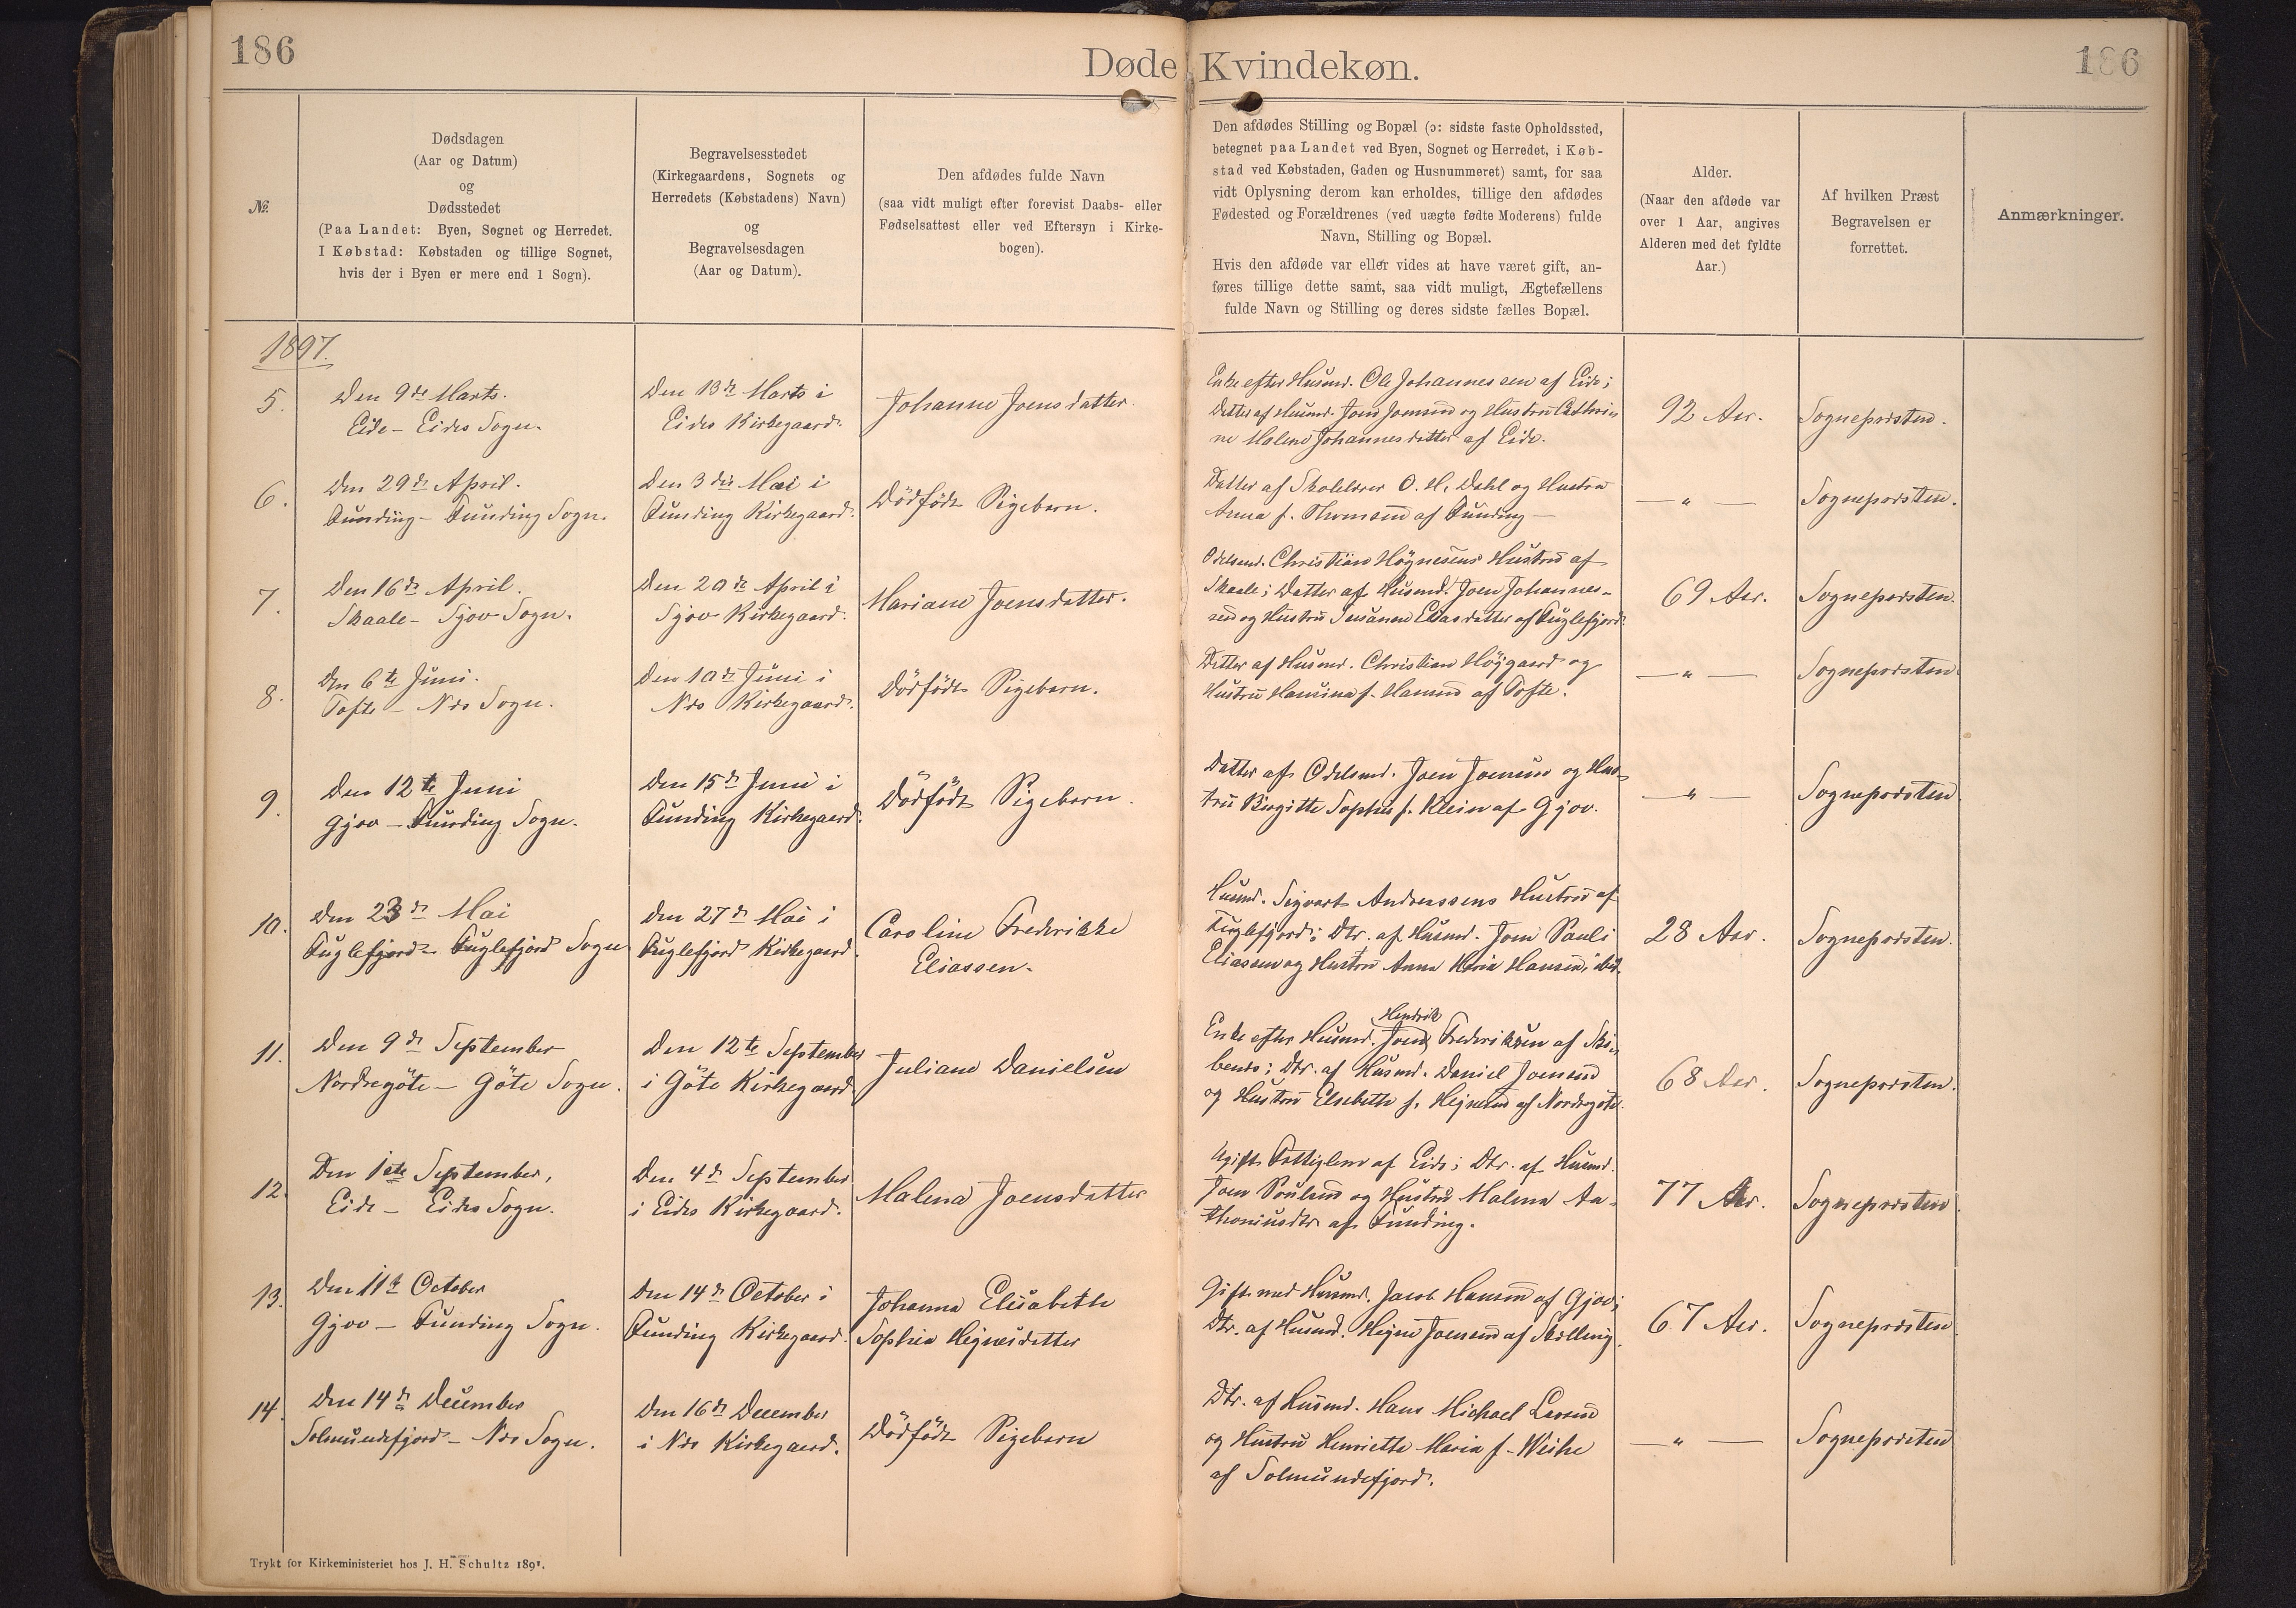 186
Døde Kvindekøn.
186
№.
Dødsdagen
(Aar og Datum)
og
Dødsstedet
(Paa Landet: Byen, Sognet og Herredet.
I Købstad: Købstaden og tillige Sognet,
hvis der i Byen er mere end 1 Sogn).
Begravelsesstedet
(Kirkegaardens, Sognets og
Herredets (Købstadens) Navn)
og
Begravelsesdagen
(Aar og Datum).
Den afdødes fulde Navn
(saa vidt muligt efter forevist Daabs- eller
Fødselsattest eller ved Eftersyn i Kirke-
bogen).
Den afdødes Stilling og Bopæl (ɔ: sidste faste Opholdssted,
betegnet paa Landet ved Byen, Sognet og Herredet, i Køb-
stad ved Købstaden, Gaden og Husnummeret) samt, for saa
vidt Oplysning derom kan erholdes, tillige den afdødes
Fødested og Forældrenes (ved uægte fødte Moderens) fulde
Navn, Stilling og Bopæl.
Hvis den afdøde var eller vides at have været gift, an-
føres tillige dette samt, saa vidt muligt, Ægtefællens
fulde Navn og Stilling og deres sidste fælles Bopæl.
Alder.
(Naar den afdøde var
over 1 Aar, angives
Alderen med det fyldte
Aar.)
Af hvilken Præst
Begravelsen er
forrettet.
Anmærkninger.
1897.
5.
Den 9de Marts.
Eide – Eides Sogn.
Den 13de Marts i
Eides Kirkegaard.
Johanne Joensdatter.
Enke efter Husmd. Ole Johannessen af Eide;
Datter af Husmd. Joen Joensen og Hustru Cathri-
ne Malene Johannesdatter af Eide.
92 Aar.
Sognepræsten.
6.
Den 29de April.
Funding – Funding Sogn.
Den 3die Mai i
Funding Kirkegaard.
Dödfödt Pigebarn.
Datter af Skolelærer O. H. Dahl og Hustru
Anna f. Thomsen af Funding –
— " —
Sognepræsten.
7.
Den 16de April.
Skaale – Sjov Sogn.
Den 20de April i
Sjov Kirkegaard.
Mariane Joensdatter.
Odelsmd. Christian Högnesens Hustru af
Skaale; Datter af Husmd. Joen Johannes-
sen og Hustru Susanne Eliasdatter af Fuglefjord.
69 Aar.
Sognepræsten.
8.
Den 6te Juni.
Tofte – Næs Sogn.
Den 10de Juni i
Næs Kirkegaard.
Dödfödt Pigebarn.
Datter af Husmd. Christian Höjgaard og
Hustru Hansina f. Hansen af Tofte.
— " —
Sognepræsten.
9.
Den 12te Juni
Gjov – Funding Sogn.
Den 15de Juni i
Funding Kirkegaard.
Dödfödt Pigebarn.
Datter af Odelsmd. Joen Joensen og Hus-
tru Birgitte Sophie f. Klein af Gjov.
— " —
Sognepræsten
10.
Den 23de Mai
Fuglefjord – Fuglefjord Sogn
Den 27de Mai i
Fuglefjord Kirkegaard.
Caroline Frederikke
Eliassen.
Husmd. Sigvart Andreassens Hustru af
Fuglefjord; Dtr. af Husmd. Joen Pauli
Eliassen og Hustru Anna Maria Hansen, ibd.
28 Aar.
Sognepræsten.
11.
Den 9de September
Nordregöte – Göte Sogn.
Den 12te September
i Göte Kirkegaard
Juliane Danielsen
Hendrik
Enke efter Husmd. Joen Frederiksen af Ski-
benæs; Dtr. af Husmd. Daniel Joensen
og Hustru Elsebeth f. Hejnesen af Nordregöte.
68 Aar.
Sognepræsten.
12.
Den 1ste September,
Eide – Eides Sogn.
Den 4de September
i Eides Kirkegaard.
Malena Joensdatter
Ugift Fattiglem af Eide; Dtr. af Husmd.
Joen Poulsen og Hustru Malena An-
thoniusdtr af Funding.
77 Aar.
Sognepræsten
13.
Den 11te October
Gjov – Funding Sogn.
Den 14de October i
Funding Kirkegaard.
Johanna Elisabeth
Sophia Hejnesdatter
Gift med Husmd. Jacob Hansen af Gjov;
Dtr. af Husmd. Hejne Joensen af Skælling.
67 Aar.
Sognepræsten
14.
Den 14de December
Solmundefjord – Næs Sogn.
Den 16de December
i Næs Kirkegaard.
Dödfödt Pigebarn
Dtr. af Husmd. Hans Michael Larsen
og Hustru Henriette Maria f. Weihe
af Solmundefjord.
— " —
Sognepræsten
Trykt for Kirkeministeriet hos J. H. Schultz 1891.